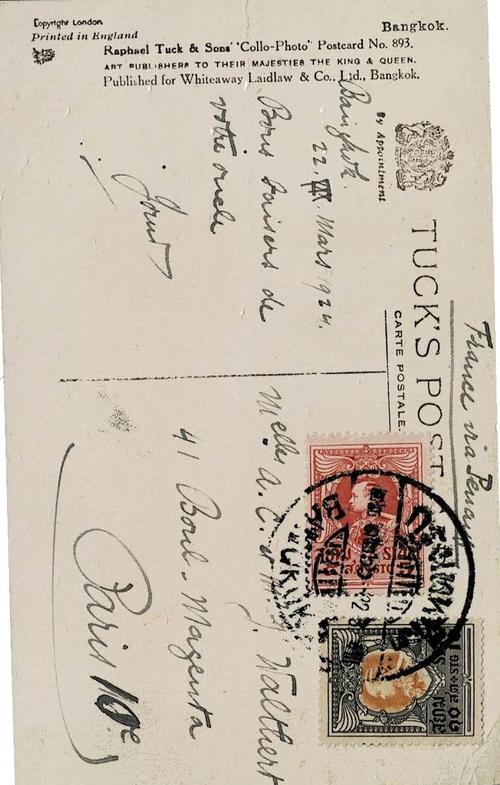 Copyright London
Printed in England
Bangkok.
Raphael Tuck & Sons' "Collo-Photo" Postcard No. 893.
ART PUBLISHERS TO THEIR MAJESTIES THE KING & QUEEN.
Published for Whiteaway Laidlaw & Co., Ltd., Bangkok.
By Appointment
TUCK'S POST
CARTE POSTALE.
France via Penang
Bangkok.
22. Mars 1924.
Bons baisers de
votre oncle
Melles A. C. Walthert
41 Boul. Magenta
Paris 10e